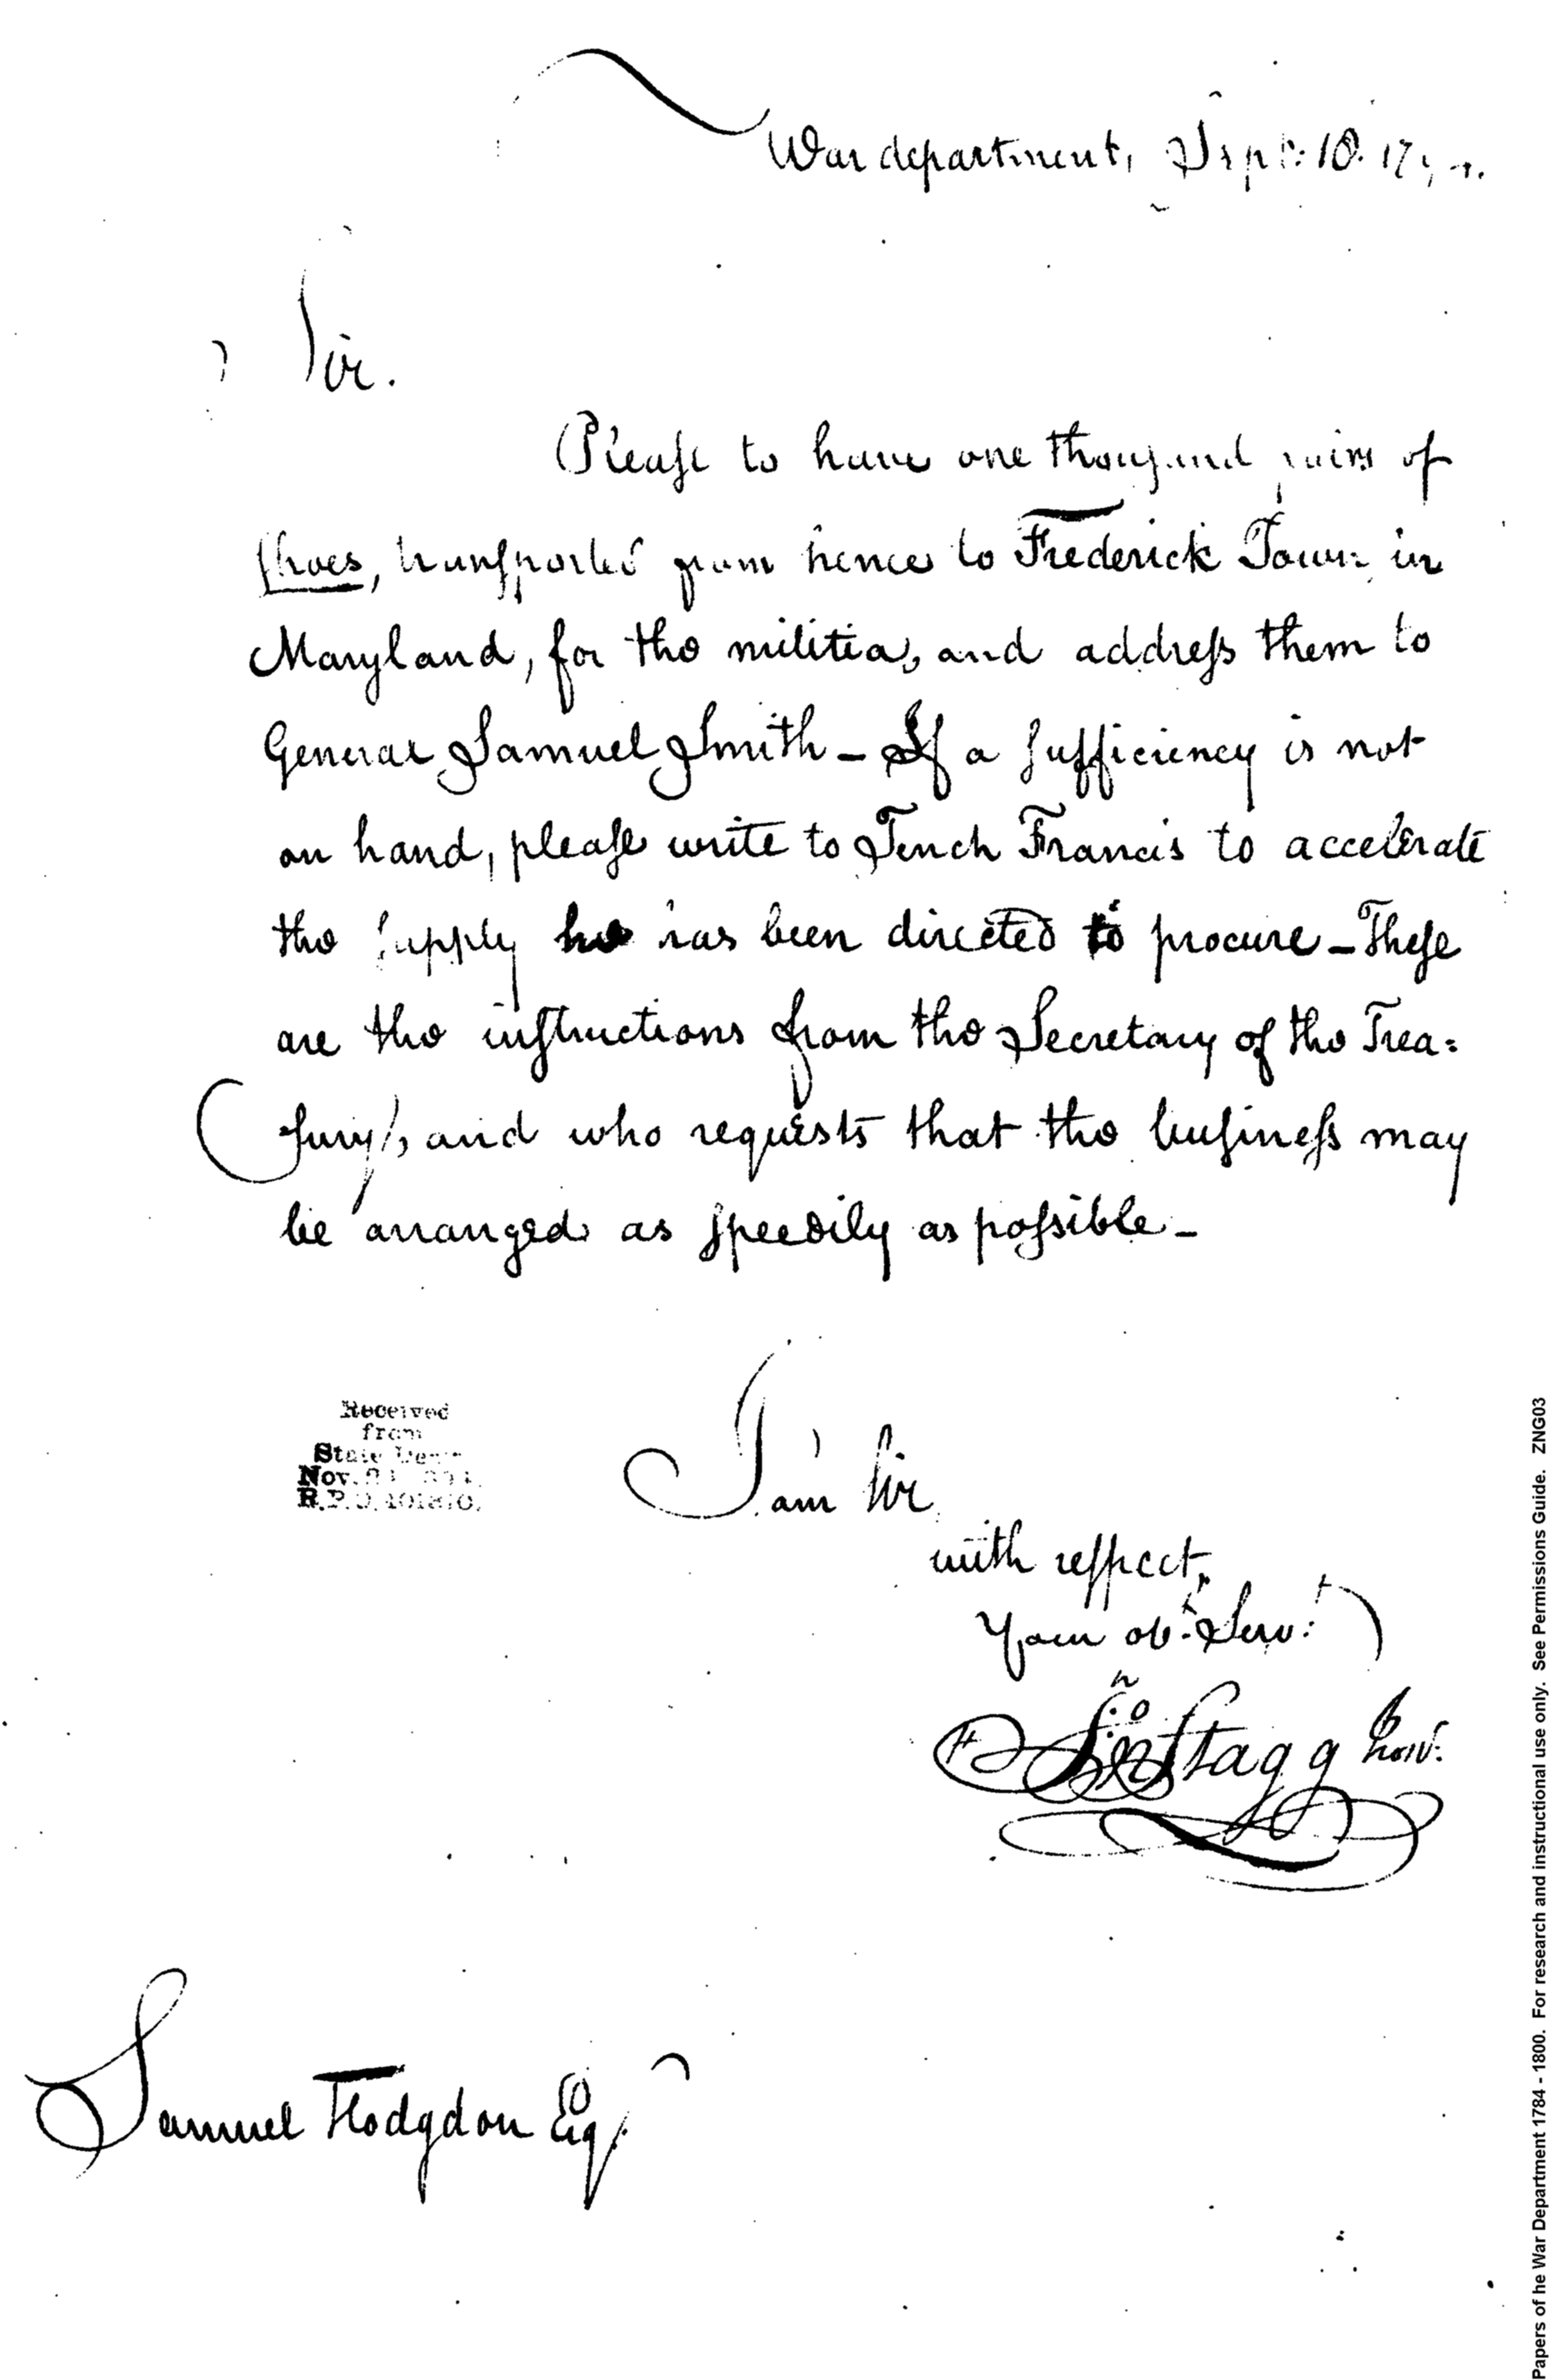 War department, Sept: 18. 17
Sir.
Please to have one thousand pairs of
shoes, transported from hence to Frederick Town in
Maryland, for the militia, and address them to
General Samuel Smith - If a sufficiency is not
on hand, please write to Tench Francis to accelerate
the supply he has been directed to procure - These
are the instructions from the Secretary of the Trea=
sury, and who requests that the business may
be arranged as speedily as possible -
Received
from
State Dept
Nov.
R.P.O.
I am Sir
with respect,
Your obt. Servt.
Jno Stagg Junr.
Samuel Hodgdon Esq.
Papers of he War Department 1784 - 1800. For research and instructional use only. See Permissions Guide. ZNG03